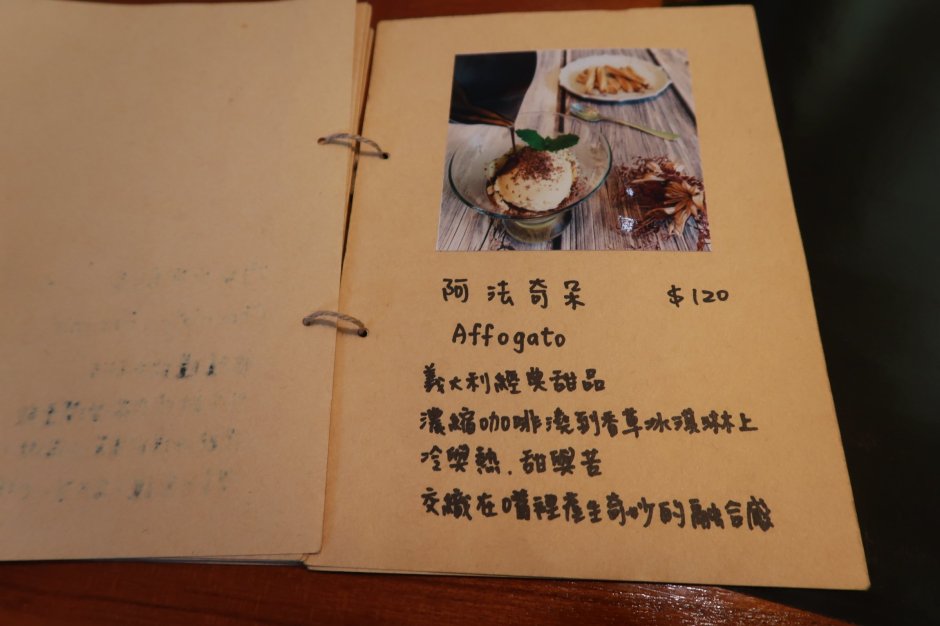 阿法奇朵 $120
Affogato
義大利經典甜品
濃縮咖啡澆到香草冰淇淋上
冷與熱.甜與苦
交織在嘴裡產生奇妙的融合感